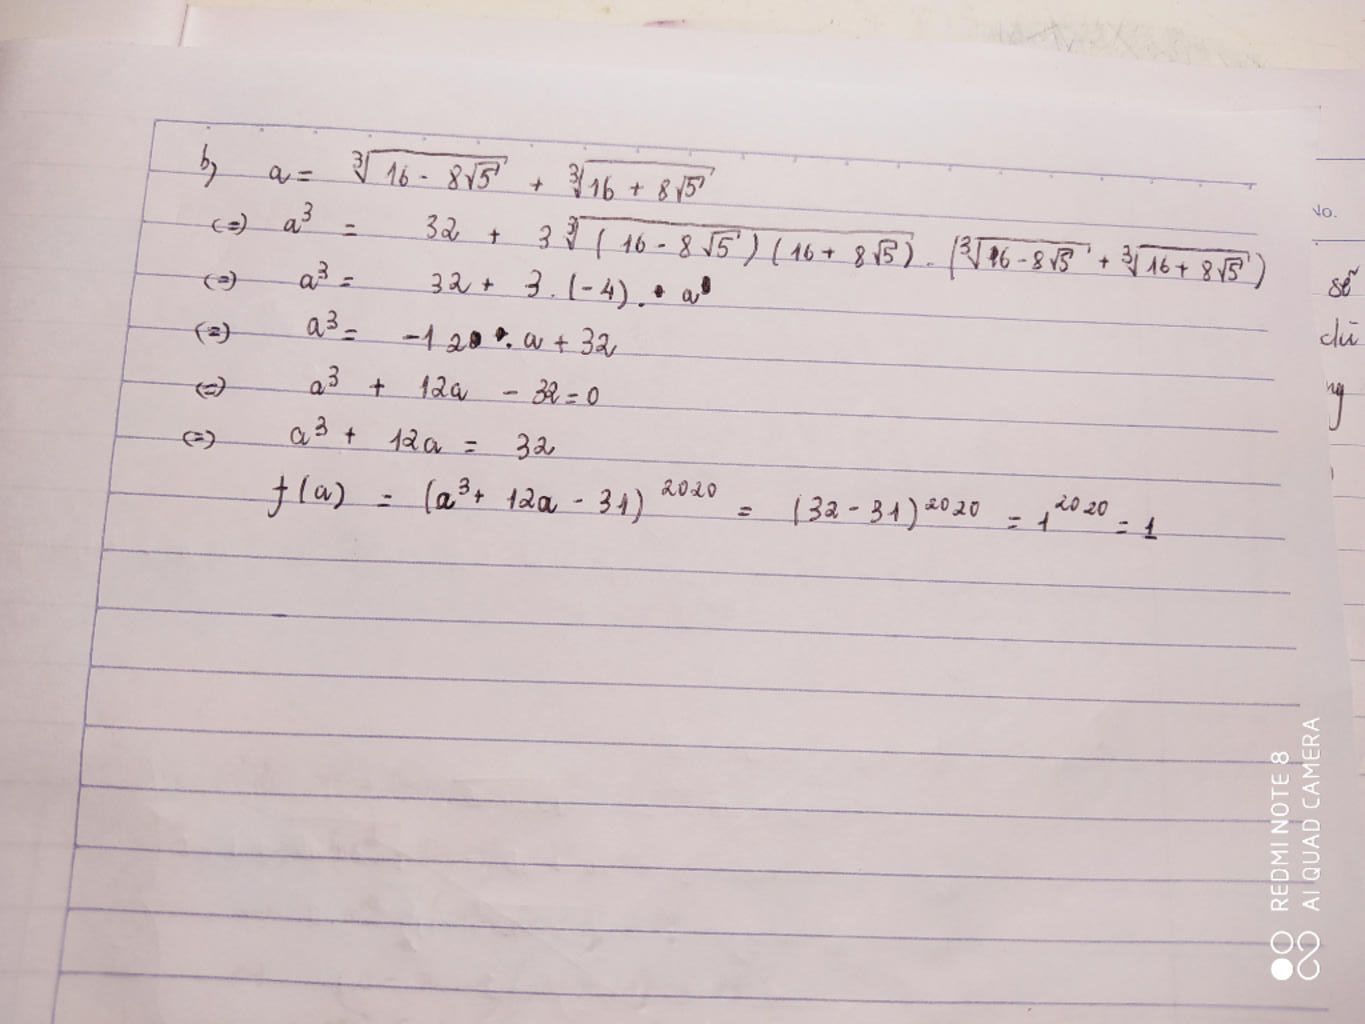 b, a = ∛(16 - 8√5) + ∛(16 + 8√5)
(=) a³ = 32 + 3∛((16 - 8√5)(16 + 8√5)) . (∛(16 - 8√5) + ∛(16 + 8√5))
(=) a³ = 32 + 3.(-4). a
(=) a³ = -12 . a + 32
(=) a³ + 12a - 32 = 0
(=) a³ + 12a = 32
f(a) = (a³ + 12a - 31)²⁰²⁰ = (32 - 31)²⁰²⁰ = 1²⁰²⁰ = 1
No.
sẽ
dù
REDMI NOTE 8
AI QUAD CAMERA